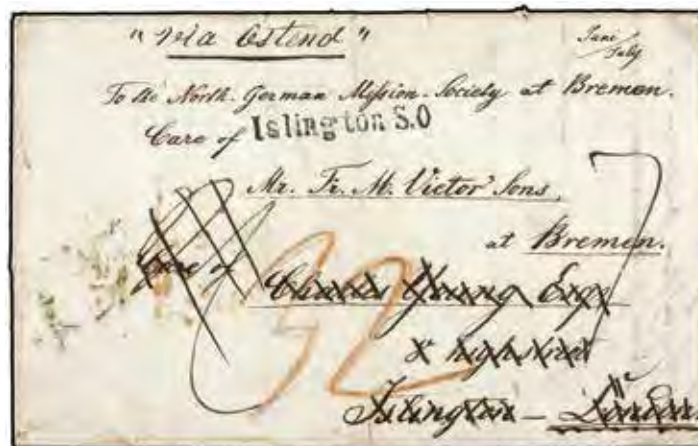 "via Ostend"
Juni
July
To the North. German Mission. Society at Bremen.
Care of Islington S.O
Mr. Fr. M. Victor' Sons,
at Bremen.
Care of
Charles Young Esqe
8 highstreet
Islington – London
32
7